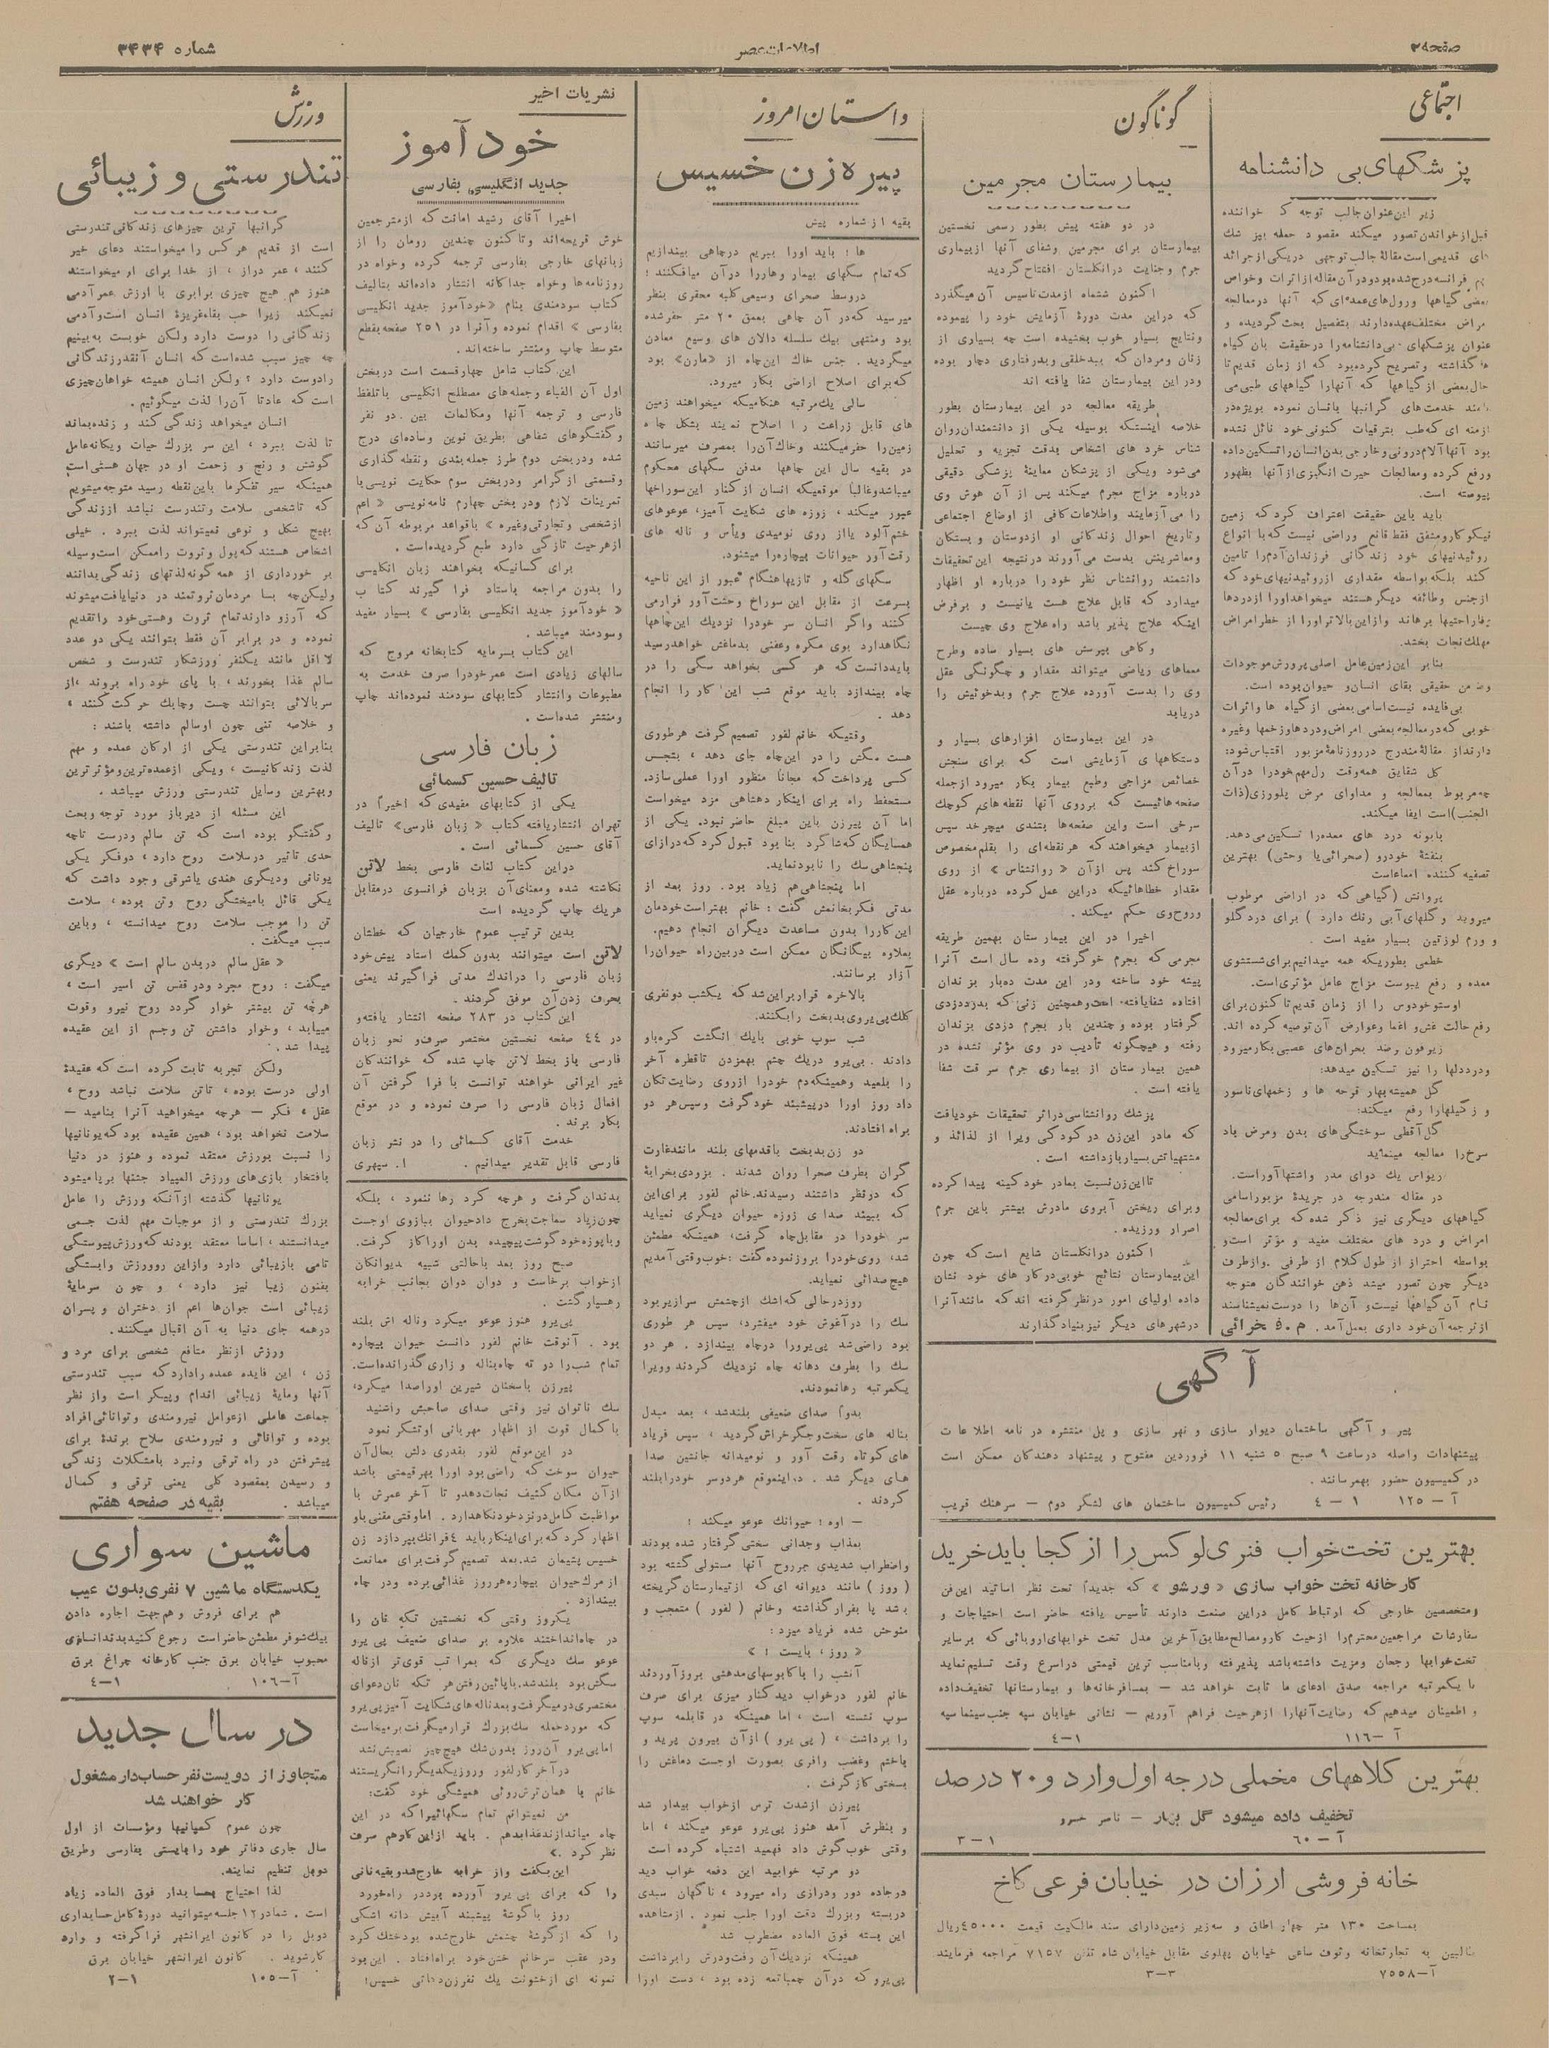 صفحه ۳
اطلاعات عصر
شماره ۳۴۳۴
اجتماعی
پزشکهای بی دانشنامه
زیر این عنوان جالب توجه که خواننده
قبل از خواندن تصور میکند مقصود حمله بپزشک
های قدیمی است مقالهٔ جالب توجهی در یکی از جرائد
فرانسه درج شده بود و در آن مقاله از اثرات و خواص
بعضی گیاهها و رول‌های عمده‌ای که آنها در معالجه
امراض مختلف عهده دارند بتفصیل بحث گردیده و
عنوان پزشکهای بی‌دانشنامه را در حقیقت بآن گیاه
ها گذاشته و تصریح کرده بود که از زمان قدیم تا
حال بعضی از گیاهها که آنهارا گیاههای طبی می
نامند خدمت‌های گرانبها بانسان نموده بویژه در
ازمنه ای که طب بترقیات کنونی خود نائل نشده
بود آنها آلام درونی و خارجی بدن انسان را تسکین داده
ورفع کرده و معالجات حیرت انگیزی از آنها بظهور
پیوسته است.
باید باین حقیقت اعتراف کرد که زمین
نیکوکار و مشفق فقط قانع و راضی نیست که با انواع
روئیدنیهای خود زندگانی فرزندان آدم را تامین
کند بلکه بواسطه مقداری از روئیدنیهای خود که
از جنس وظائفه دیگر هستند میخواهد اورا از دردها
وناراحتیها برهاند و از این بالاتر اورا از خطر امراض
مهلک نجات بخشد.
بنابر این زمین عامل اصلی پرورش موجودات
وضامن حقیقی بقای انسان و حیوان بوده است.
بی فایده نیست اسامی بعضی از گیاه ها و اثرات
خوبی که در معالجه بعضی امراض و دردها و زخمها وغیره
دارند از مقالهٔ مندرج در روزنامهٔ مزبور اقتباس شود:
گل شقایق همه وقت رل مهم خودرا در آن
چه مربوط بمعالجه و مداوای مرض پلورزی(ذات
الجنب)است ایفا میکند.
بابونه درد های معده را تسکین می دهد.
بنفشهٔ خودرو (صحرائی یا وحشی) بهترین
تصفیه کننده امعاء است
پروانش (گیاهی که در اراضی مرطوب
میروید و گلهای آبی رنگ دارد ) برای درد گلو
و ورم لوزتین بسیار مفید است .
خطمی بطوریکه همه میدانیم برای شستشوی
معده و رفع یبوست مزاج عامل مؤثری است.
اوستوخودوس را از زمان قدیم تا کنون برای
رفع حالت غش و اغما و عوارض آن توصیه کرده اند.
زیرفون بر ضد بحران‌های عصبی بکار میرود
و درد دلها را نیز تسکین میدهد:
گل همیشه بهار قرحه ها و زخمهای ناسور
و زگیلهارا رفع میکند:
گل آقطی سوختگی‌های بدن و مرض باد
سرخ را معالجه مینماید
ریواس یک دوای مدر و اشتها آور است.
در مقاله مندرجه در جریدهٔ مزبور اسامی
گیاههای دیگری نیز ذکر شده که برای معالجه
امراض و درد های مختلف مفید و مؤثر است و
بواسطه احتراز از طول کلام از طرفی . و از طرف
دیگر چون تصور میشد ذهن خوانندگان متوجه
تمام آن گیاهها نیست و آن ها را درست نمیشناسند
از ترجمه آن خود داری بعمل آمد . م . فخرائی
گوناگون
بیمارستان مجرمین
در دو هفته پیش بطور رسمی نخستین
بیمارستان برای مجرمین وشفای آنها از بیماری
جرم و جنایت در انگلستان افتتاح گردید
اکنون ششماه از مدت تاسیس آن میگذرد
که در این مدت دورهٔ آزمایش خود را پیموده
ونتایج بسیار خوب بخشیده است چه بسیاری از
زنان و مردان که ببدخلقی و بدرفتاری دچار بوده
و در این بیمارستان شفا یافته اند
طریقه معالجه در این بیمارستان بطور
خلاصه اینستکه بوسیله یکی از دانشمندان روان
شناس خرد های اشخاص بدقت تجزیه و تحلیل
می شود ویکی از پزشکان معاینهٔ پزشکی دقیقی
درباره مزاج مجرم میکند پس از آن هوش وی
را می آزمایند و اطلاعات کافی از اوضاع اجتماعی
وتاریخ احوال زندگانی او از دوستان و بستگان
ومعاشرینش بدست می آورند در نتیجه این تحقیقات
دانشمند روانشناس نظر خود را درباره او اظهار
میدارد که قابل علاج هست یا نیست و بر فرض
اینکه علاج پذیر باشد راه علاج وی چیست
و گاهی بپرسش های بسیار ساده وطرح
معماهای ریاضی میتواند مقدار و چگونگی عقل
وی را بدست آورده علاج جرم وبدخوئیش را
دریابد
در این بیمارستان افزارهای بسیار و
دستگاهای آزمایشی است که برای سنجش
خصائص مزاجی و طبع بیمار بکار میرود از جمله
صفحه هائیست که برروی آنها نقطه های کوچک
سرخی است و این صفحه ها بتندی میچرخد سپس
از بیمار میخواهند که هر نقطه ای را بقلم مخصوص
سوراخ کند پس از آن « روانشناس » از روی
مقدار خطاهائیکه در این عمل کرده درباره عقل
وروح وی حکم میکند .
اخیرا در این بیمارستان بهمین طریقه
مجرمی که بجرم خو گرفته وده سال است آنرا
پیشه خود ساخته و در این مدت ده بار بزندان
افتاده شفا یافته است و همچنین زنی که بدزدی
گرفتار بوده و چندین بار بجرم دزدی بزندان
رفته و هیچگونه تأدیب در وی مؤثر نشده در
همین بیمارستان از بیماری جرم سرقت شفا
یافته است .
پزشک روانشناسی در اثر تحقیقات خود یافت
که مادر این زن در کودکی ویرا از لذائذ و
مشتهیاتش بسیار باز داشته است .
تا این زن نسبت بمادر خود کینه پیدا کرده
وبرای ریختن آبروی مادرش بیشتر باین جرم
اصرار ورزیده .
اکنون در انگلستان شایع است که چون
این بیمارستان نتائج خوبی در کار های خود نشان
داده اولیای امور در نظر گرفته اند که مانند آنرا
در شهرهای دیگر نیز بنیاد گذارند
آگهی
پیر و آگهی ساختمان دیوار سازی و نهر سازی و پل منتشره در نامه اطلاعات
پیشنهادات واصله در ساعت ۹ صبح ۵ شنبه ۱۱ فروردین مفتوح و پیشنهاد دهندگان ممکن است
در کمیسیون حضور بهمرسانند .
آ — ۱۲۵ ۱ — ۴ رئیس کمیسیون ساختمان های لشگر دوم — سرهنگ قریب
بهترین تخت خواب فنری لوکس را از کجا باید خرید
کارخانه تخت خواب سازی « ورشو » که جدیداً تحت نظر اساتید این فن
ومتخصصین خارجی که ارتباط کامل در این صنعت دارند تأسیس یافته حاضر است احتیاجات و
سفارشات مراجعین محترم را از حیث کار و مصالح مطابق آخرین مدل تخت خوابهای اروپائی که بر سایر
تخت خوابها رجحان و مزیت داشته باشد پذیرفته و بامناسب ترین قیمتی در اسرع وقت تسلیم نماید
با یکمرتبه مراجعه صدق ادعای ما ثابت خواهد شد — بمسافرخانه ها و بیمارستانها تخفیف داده
و اطمینان میدهیم که رضایت آنهارا از هر حیث فراهم آوریم — نشانی خیابان سپه جنب سینما سپه
آ — ۱۱۶ ۱—۴
بهترین کلاههای مخملی درجه اول وارد و ۲۰ درصد
تخفیف داده میشود گل بهار — ناصر خسرو
آ — ۶۰ ۱—۳
خانه فروشی ارزان در خیابان فرعی کاخ
بمساحت ۱۳۰ متر چهار اطاق و سه زیر زمین دارای سند مالکیت قیمت ۴۵۰۰۰ ریال
طالبین به تجارتخانه وثوق ساعی خیابان پهلوی مقابل خیابان شاه تلفن ۷۱۵۷ مراجعه فرمایند
آ—۷۵۵۸ ۳—۳
داستان امروز
پیره زن خسیس
بقیه از شماره پیش
ها ! باید اورا ببریم در چاهی بیندازیم
که تمام سگهای بیمار و هار را در آن میافکنند !
در وسط صحرای وسیعی کلبه محقری بنظر
میرسید که در آن چاهی بعمق ۲۰ متر حفر شده
بود و منتهی بیک سلسله دالان های وسیع معادن
میگردید . جنس خاک این چاه از «مارن» بود
که برای اصلاح اراضی بکار میرود.
سالی یک مرتبه هنگامیکه میخواهند زمین
های قابل زراعت را اصلاح نمایند بشکل چاه
زمین را حفر میکنند و خاک آن را بمصرف میرسانند
در بقیه سال این چاهها مدفن سگهای محکوم
میباشد و غالباً موقعیکه انسان از کنار این سوراخها
عبور میکند ، زوزه های شکایت آمیز، عوعوهای
خشم آلود یا از روی نومیدی و یأس و ناله های
رقت آور حیوانات بیچاره را میشنود.
سگهای گله و تازیها هنگام عبور از این ناحیه
بسرعت از مقابل این سوراخ وحشت آور فرار می
کنند و اگر انسان سر خودرا نزدیک این چاهها
نگاهدارد بوی مکره و عفنی بدماغش خواهد رسید
باید دانست که هر کسی بخواهد سگی را در
چاه بیندازد باید موقع شب این کار را انجام
دهد .
وقتیکه خانم لفور تصمیم گرفت هر طوری
هست سگش را در این چاه جای دهد ، بتجسس
کسی پرداخت که مجاناً منظور اورا عملی سازد.
مستحفظ راه برای اینکار ده شاهی مزد میخواست
اما آن پیرزن باین مبلغ حاضر نبود. یکی از
همسایگان که شاگرد بنا بود قبول کرد که در ازای
پنجشاهی سگ را نابود نماید.
اما پنجشاهی هم زیاد بود . روز بعد از
مدتی فکر بخانمش گفت : خانم بهتر است خودمان
این کار را بدون مساعدت دیگران انجام دهیم.
بعلاوه بیگانگان ممکن است در بین راه حیوان را
آزار برسانند.
بالاخره قرار بر این شد که یکشب دو نفری
کلک پی یروی بدبخت را بکنند.
شب سوپ خوبی با یک انگشت کره باو
دادند . پی یرو در یک چشم بهمزدن تا قطره آخر
را بلعید و همینکه دم خودرا از روی رضایت تکان
داد روز اورا در پیشبند خود گرفت و سپس هر دو
براه افتادند.
دو زن بدبخت با قدمهای بلند مانند غارت
گران بطرف صحرا روان شدند . بزودی بخرابهٔ
که در نظر داشتند رسیدند. خانم لفور برای این
که ببیند صدای زوزه حیوان دیگری نمیاید
سر خودرا در مقابل چاه گرفت، همینکه مطمئن
شد، روی خودرا بروز نموده گفت :خوب وقتی آمدیم
هیچ صدائی نمیاید.
روز در حالی که اشک از چشمش سرازیر بود
سگ را در آغوش خود میفشرد، سپس هر طوری
بود راضی شد پی یرورا در چاه بیندازد . هر دو
سگ را بطرف دهانه چاه نزدیک کردند و ویرا
یکمرتبه رها نمودند.
بدواً صدای ضعیفی بلند شد ، بعد مبدل
بناله های سخت و جگر خراش گردید ، سپس فریاد
های کوتاه رقت آور و نومیدانه جانشین صدا
های دیگر شد . در اینموقع هردو سر خودرا بلند
کردند .
— اوه ! حیوانک عوعو میکند !
بعذاب وجدانی سختی گرفتار شده بودند
و اضطراب شدیدی بر روح آنها مستولی گشته بود
(روز) مانند دیوانه ای که از تیمارستان گریخته
باشد پا بفرار گذاشته و خانم ( لفور ) متعجب و
متوحش شده فریاد میزد :
« روز ، بایست ! »
آنشب را با کابوسهای مدهشی بروز آوردند
خانم لفور در خواب دید کنار میزی برای صرف
سوپ نشسته است ، اما همینکه در قابلمه سوپ
را برداشت ، ( پی یرو ) از آن بیرون پرید و
باخشم و غضب وافری بصورت او جست دماغش را
بسختی گاز گرفت .
پیرزن از شدت ترس از خواب بیدار شد
و بنظرش آمد هنوز پی یرو عوعو میکند ، اما
وقتی خوب گوش داد فهمید اشتباه کرده است
دو مرتبه خوابید این دفعه خواب دید
در جاده دور و درازی راه میرود ، ناگهان سبدی
در بسته و بزرگ دقت اورا جلب نمود . از مشاهده
این بسته فوق العاده مضطرب شد
همینکه نزدیک آن رفت و درش را برداشت
پی یرو که در آن چمباتمه زده بود ، دست اورا
بدندان گرفت و هر چه کرد رها ننمود ، بلکه
چون زیاد سماجت بخرج داد حیوان ببازوی او جست
و با پوزه خود گوشت پیچیده بدن اورا گاز گرفت.
صبح روز بعد با حالتی شبیه بدیوانگان
از خواب برخاست و دوان دوان بجانب خرابه
رهسپار گشت .
پی یرو هنوز عوعو میکرد و ناله اش بلند
بود . آنوقت خانم لفور دانست حیوان بیچاره
تمام شب را در ته چاه بناله و زاری گذرانده است.
پیرزن با سخنان شیرین اورا صدا میکرد،
سگ ناتوان نیز وقتی صدای صاحبش را شنید
با کمال قوت از اظهار مهربانی او تشکر نمود
در این موقع لفور بقدری دلش بحال آن
حیوان سوخت که راضی بود اورا بهر قیمتی باشد
از آن مکان کثیف نجات دهد و تا آخر عمرش با
مواظبت کامل در نزد خود نگاهدارد . اما وقتی مقنی باو
اظهار کرد که برای اینکار باید ٤ فرانک بپردازد زن
خسیس پشیمان شد. بعد تصمیم گرفت برای ممانعت
از مرگ حیوان بیچاره هر روز غذائی برده و در چاه
بیندازد .
یکروز وقتی که نخستین تکه نان را
در چاه انداختند علاوه بر صدای ضعیف پی یرو
عوعو سگ دیگری که بمراتب قوی تر از ناله
سگش بود بلند شد. با پائین رفتن هر تکه نان دعوای
مختصری در میگرفت و بعد ناله های شکایت آمیز پی یرو
که مورد حمله سگ بزرگ قرار میگرفت برمیخاست
اما پی یرو آن روز بدون شک هیچ چیز نصیبش نشد
در آخر کار لفور و روز یکدیگر را نگریستند
خانم با همان ترش روئی همیشگی خود گفت:
من نمیتوانم تمام سگهائیرا که در این
چاه میاندازند غذا بدهم . باید از این کار هم صرف
نظر کرد .»
این بگفت و از خرابه خارج شد و بقیه نانی
را که برای پی یرو آورده بود در راه خورد
روز با گوشهٔ پیشبند آبیش دانه اشکی
را که از گوشهٔ چشمش خارج شده بود خشک کرد
و در عقب سر خانم خشن خود براه افتاد . این بود
نمونه ای از خشونت یک نفر زن دهاتی خسیس!
نشریات اخیر
خود آموز
جدید انگلیسی بفارسی
اخیرا آقای رشید امانت که از مترجمین
خوش قریحه اند و تا کنون چندین رومان را از
زبانهای خارجی بفارسی ترجمه کرده و خواه در
روزنامه ها و خواه جداگانه انتشار داده اند بتالیف
کتاب سودمندی بنام « خود آموز جدید انگلیسی
بفارسی » اقدام نموده و آنرا در ۲۵۱ صفحه بقطع
متوسط چاپ و منتشر ساخته اند.
این کتاب شامل چهار قسمت است در بخش
اول آن الفباء و جمله های مصطلح انگلیسی با تلفظ
فارسی و ترجمه آنها و مکالمات بین دو نفر
و گفتگوهای شفاهی بطریق نوین و ساده ای درج
شده و در بخش دوم طرز جمله بندی و نقطه گذاری
و قسمتی از گرامر و در بخش سوم حکایت نویسی با
تمرینات لازم و در بخش چهارم نامه نویسی « اعم
از شخصی و تجارتی و غیره » با قواعد مربوطه آن که
از هر حیث تازگی دارد طبع گردیده است .
برای کسانیکه بخواهند زبان انگلیسی
را بدون مراجعه باستاد فرا گیرند کتاب
« خود آموز جدید انگلیسی بفارسی » بسیار مفید
و سودمند میباشد .
این کتاب بسرمایه کتابخانه مروج که
سالهای زیادی است عمر خود را صرف خدمت به
مطبوعات و انتشار کتابهای سودمند نموده اند چاپ
و منتشر شده است .
زبان فارسی
تالیف حسین کسمائی
یکی از کتابهای مفیدی که اخیراً در
تهران انتشار یافته کتاب « زبان فارسی» تالیف
آقای حسین کسمائی است .
در این کتاب لغات فارسی بخط لاتن
نگاشته شده و معنای آن بزبان فرانسوی در مقابل
هر یک چاپ گردیده است
بدین ترتیب عموم خارجیان که خطشان
لاتن است میتوانند بدون کمک استاد پیش خود
زبان فارسی را در اندک مدتی فرا گیرند یعنی
بحرف زدن آن موفق گردند .
این کتاب در ۲۸۳ صفحه انتشار یافته و
در ٤٤ صفحه نخستین مختصر صرف و نحو زبان
فارسی باز بخط لاتن چاپ شده که خوانندگان
غیر ایرانی خواهند توانست با فرا گرفتن آن
افعال زبان فارسی را صرف نموده و در موقع
بکار برند .
خدمت آقای کسمائی را در نشر زبان
فارسی قابل تقدیر میدانیم . ا. سپهری
ورزش
تندرستی و زیبائی
گرانبها ترین چیزهای زندگانی تندرستی
است از قدیم هر کس را میخواستند دعای خیر
کنند ، عمر دراز ، از خدا برای او میخواستند
هنوز هم هیچ چیزی برابری با ارزش عمر آدمی
نمیکند زیرا حب بقاء غریزهٔ انسان است و آدمی
زندگانی را دوست دارد ولکن خوبست به بینیم
چه چیز سبب شده است که انسان آنقدر زندگانی
را دوست دارد ؟ ولکن انسان همیشه خواهان چیزی
است که عادتاً آن را لذت میگوئیم .
انسان میخواهد زندگی کند و زنده بماند
تا لذت ببرد ، این سر بزرگ حیات و یگانه عامل
گوشش و رنج و زحمت او در جهان هستی است
همینکه سیر تفکر ما باین نقطه رسید متوجه میشویم
که تا شخصی سلامت و تندرست نباشد از زندگی
بهیچ شکل و نوعی نمیتواند لذت ببرد . خیلی
اشخاص هستند که پول و ثروت را ممکن است وسیله
بر خورداری از همه گونه لذتهای زندگی بدانند
ولیکن چه بسا مردمان ثروتمند در دنیا یافت میشوند
که آرزو دارند تمام ثروت و هستی خود را تقدیم
نموده و در برابر آن فقط بتوانند یکی دو عدد
لااقل مانند یکنفر ورزشکار تندرست و شخص
سالم غذا بخورند ، با پای خود راه بروند ، از
سربالائی بتوانند چست و چابک حرکت کنند ،
و خلاصه تنی چون او سالم داشته باشند :
بنابراین تندرستی یکی از ارکان عمده و مهم
لذت زندگانیست ، ویکی از عمده ترین و مؤثر ترین
و بهترین وسایل تندرستی ورزش میباشد .
این مسئله از دیر باز مورد توجه و بحث
و گفتگو بوده است که تن سالم و درست تا چه
حدی تاثیر در سلامت روح دارد ، دو فکر یکی
یونانی و دیگری هندی یا شرقی وجود داشت که
یکی قائل بآمیختگی روح و تن بوده ، سلامت
تن را موجب سلامت روح میدانسته ، و باین
سبب میگفت .
« عقل سالم در بدن سالم است » دیگری
میگفت : روح مجرد و در قفس تن اسیر است ،
هر چه تن بیشتر خوار گردد روح نیرو و قوت
مییابد ، و خوار داشتن تن و جسم از این عقیده
پیدا شد .
ولکن تجربه ثابت کرده است که عقیدهٔ
اولی درست بوده ، تا تن سلامت نباشد روح ،
عقل ، فکر — هر چه میخواهید آنرا بنامید —
سلامت نخواهد بود ، همین عقیده بود که یونانیها
را نسبت بورزش معتقد نموده و هنوز در دنیا
بافتخار بازی های ورزش المپیاد جشنها برپا میشود
یونانیها گذشته از آنکه ورزش را عامل
بزرگ تندرستی و از موجبات مهم لذت جسمی
میدانستند ، اساسا معتقد بودند که ورزش پیوستگی
تامی بازیبائی دارد و از این رو ورزش وابستگی
بفنون زیبا نیز دارد ، و چون سرمایهٔ
زیبائی است جوانها اعم از دختران و پسران
در همه جای دنیا به آن اقبال میکنند .
ورزش از نظر منافع شخصی برای مرد و
زن ، این فایده عمده را دارد که سبب تندرستی
آنها و مایهٔ زیبائی اندام و پیکر است و از نظر
جماعت عاملی از عوامل نیرومندی و توانائی افراد
بوده و توانائی و نیرومندی سلاح برندهٔ برای
پیشرفتن در راه ترقی و نبرد با مشکلات زندگی
و رسیدن بمقصود کلی یعنی ترقی و کمال
میباشد . بقیه در صفحه هفتم
ماشین سواری
یکدستگاه ماشین ۷ نفری بدون عیب
هم برای فروش و هم جهت اجاره دادن
بیک شوفر مطمئن حاضر است رجوع کنید بدندانسازی
محبوب خیابان برق جنب کارخانه چراغ برق
آ—۱۰۶ ۱—۴
در سال جدید
متجاوز از دویست نفر حساب دار مشغول
کار خواهند شد
چون عموم کمپانیها و مؤسسات از اول
سال جاری دفاتر خود را بایستی بفارسی و طریق
دوبل تنظیم نمایند.
لذا احتیاج بحسابدار فوق العاده زیاد
است . شما در ۱۲ جلسه میتوانید دورهٔ کامل حسابداری
دوبل را در کانون ایرانشهر فرا گرفته و وارد
کار شوید . کانون ایرانشهر خیابان برق
آ—۱۰۵ ۱—۲